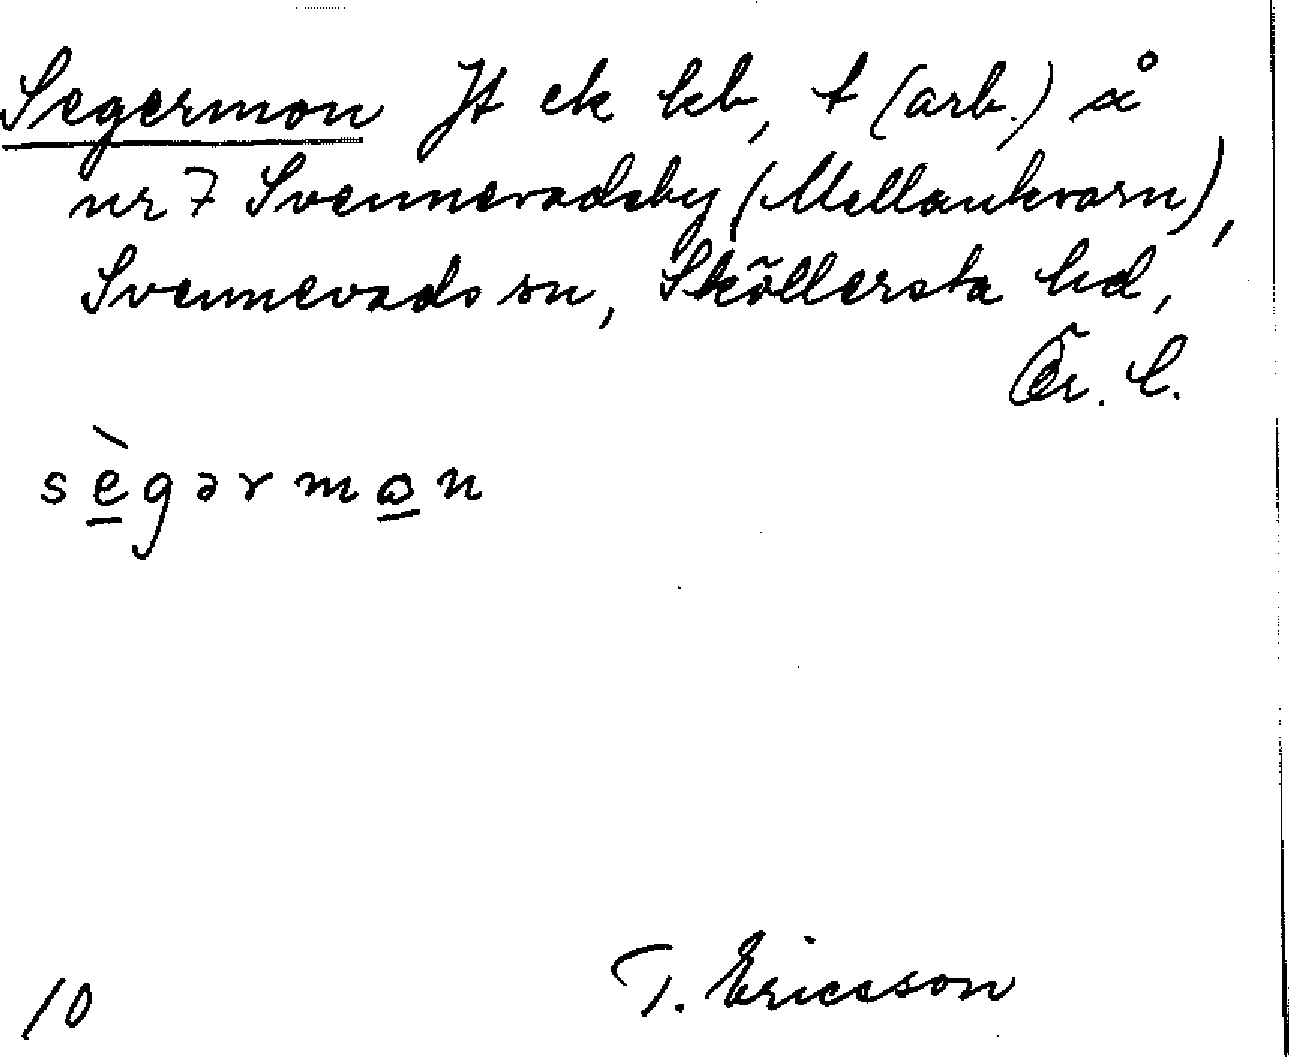 Segermon Jt ek kb, t (arb.) å
nr 7 Svennevadsby (Mellankvarn),
Svennevads sn, Sköllersta hd,
Ör. l.
sègərmɷn
T. Ericsson
10